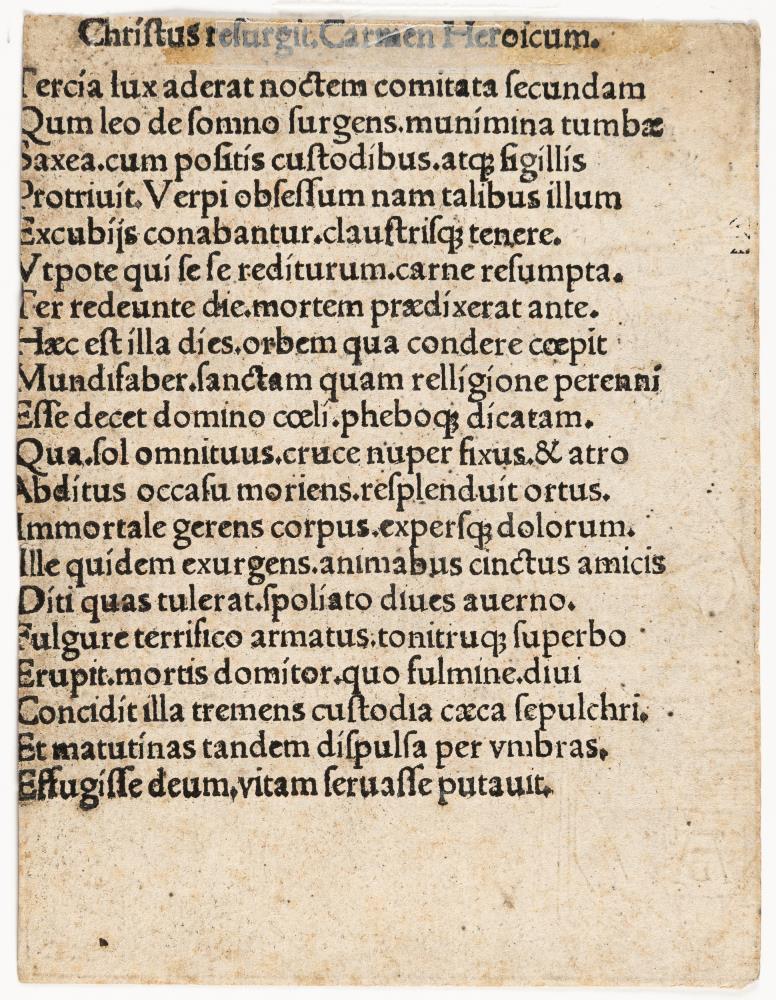 Chriſtus reſurgit. Carmen Heroicum.
Tercia lux aderat noctem comitata ſecundam
Qum leo de ſomno ſurgens.munimina tumbæ
Saxea.cum poſitis cuſtodibus.atqꝫ ſigillis
Protriuit. Verpi obſeſſum nam talibus illum
Excubijs conabantur.clauſtriſqꝫ tenere.
Vtpote qui ſe ſe rediturum.carne reſumpta.
Ter redeunte die.mortem prædixerat ante.
Hæc eſt illa dies.orbem qua condere cœpit
Mundifaber.ſanctam quam relligione perenni
Eſſe decet domino cœli.pheboqꝫ dicatam.
Qua.ſol omnituus.cruce nuper fixus.& atro
Abditus occaſu moriens.reſplenduit ortus.
Immortale gerens corpus.experſqꝫ dolorum.
Ille quidem exurgens.animabus cinctus amicis
Diti quas tulerat.ſpoliato diues auerno.
Fulgure terrifico armatus.tonitruqꝫ ſuperbo
Erupit.mortis domitor.quo fulmine.diui
Concidit illa tremens cuſtodia cæca ſepulchri.
Et matutinas tandem diſpulſa per vmbras.
Effugiſſe deum,vitam ſeruaſſe putauit.